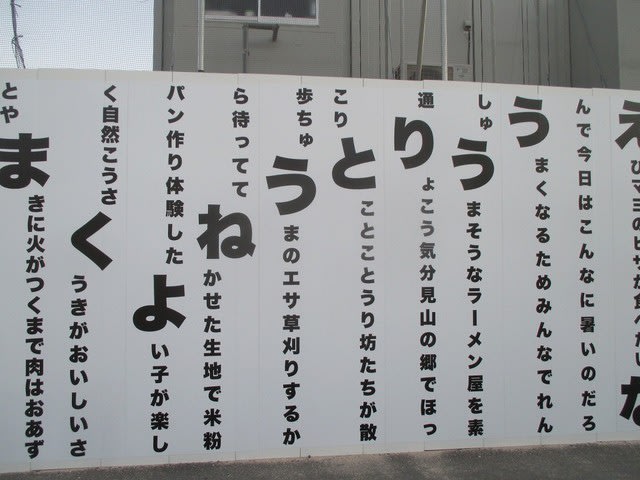 んで今日はこんなに暑いのだろ
うまくなるためみんなでれん
しゅうまそうなラーメン屋を素
通りょこう気分見山の郷でほっ
こりとことことうり坊たちが散
歩ちゅうまのエサ草刈りするか
ら待っててねかせた生地で米粉
パン作り体験したよい子が楽し
く自然こうさくうきがおいしいさ
とやまきに火がつくまで肉はおあず